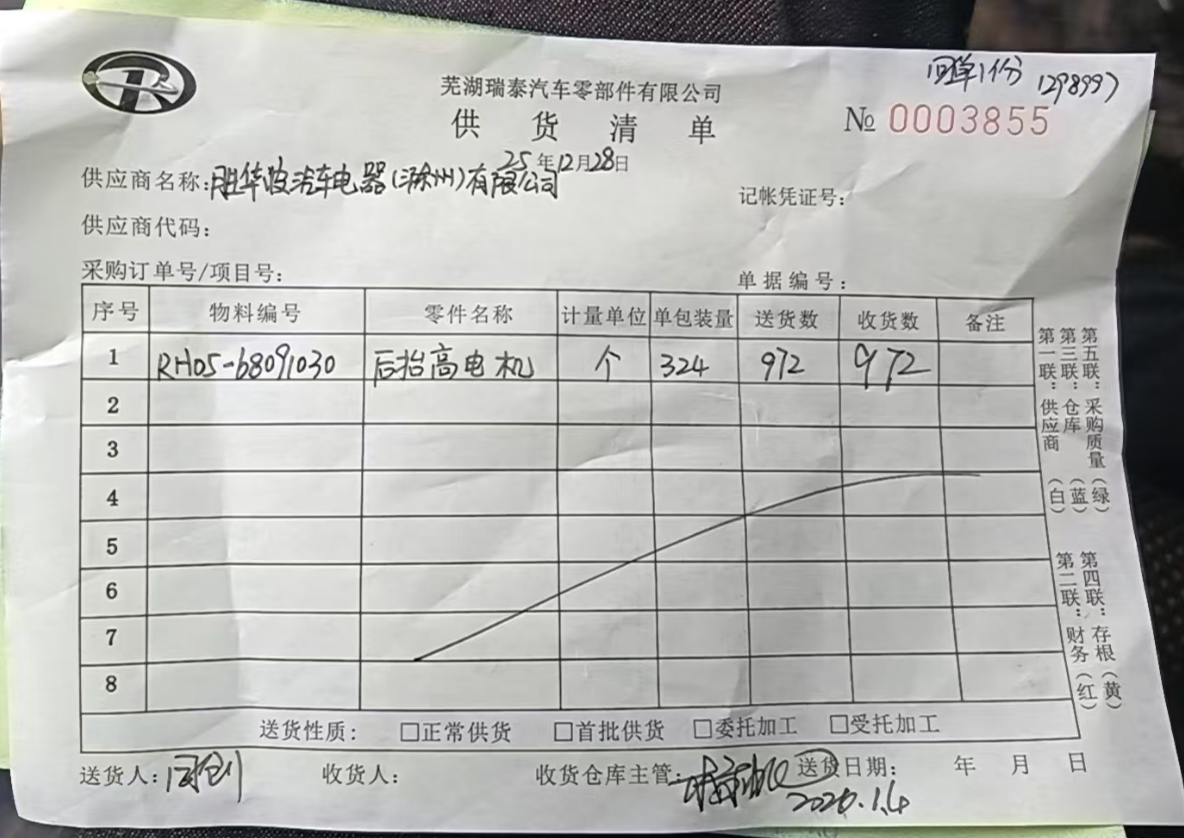 回单1份 1298997
芜湖瑞泰汽车零部件有限公司
供货清单
№ 0003855
25年12月28日
供应商名称:胜华波汽车电器(滁州)有限公司
记帐凭证号:
供应商代码:
采购订单号/项目号:
单据编号:
序号 物料编号 零件名称 计量单位 单包装量 送货数 收货数 备注
1 RH05-68091030 后抬高电机 个 324 972 972
2
3
4
5
6
7
8
送货性质: □正常供货 □首批供货 □委托加工 □受托加工
送货人: 收货人: 收货仓库主管: 送货日期: 年 月 日
2026.1.4
第一联:供应商(白)
第三联:仓库(蓝)
第五联:采购质量(绿)
第二联:财务(红)
第四联:存根(黄)